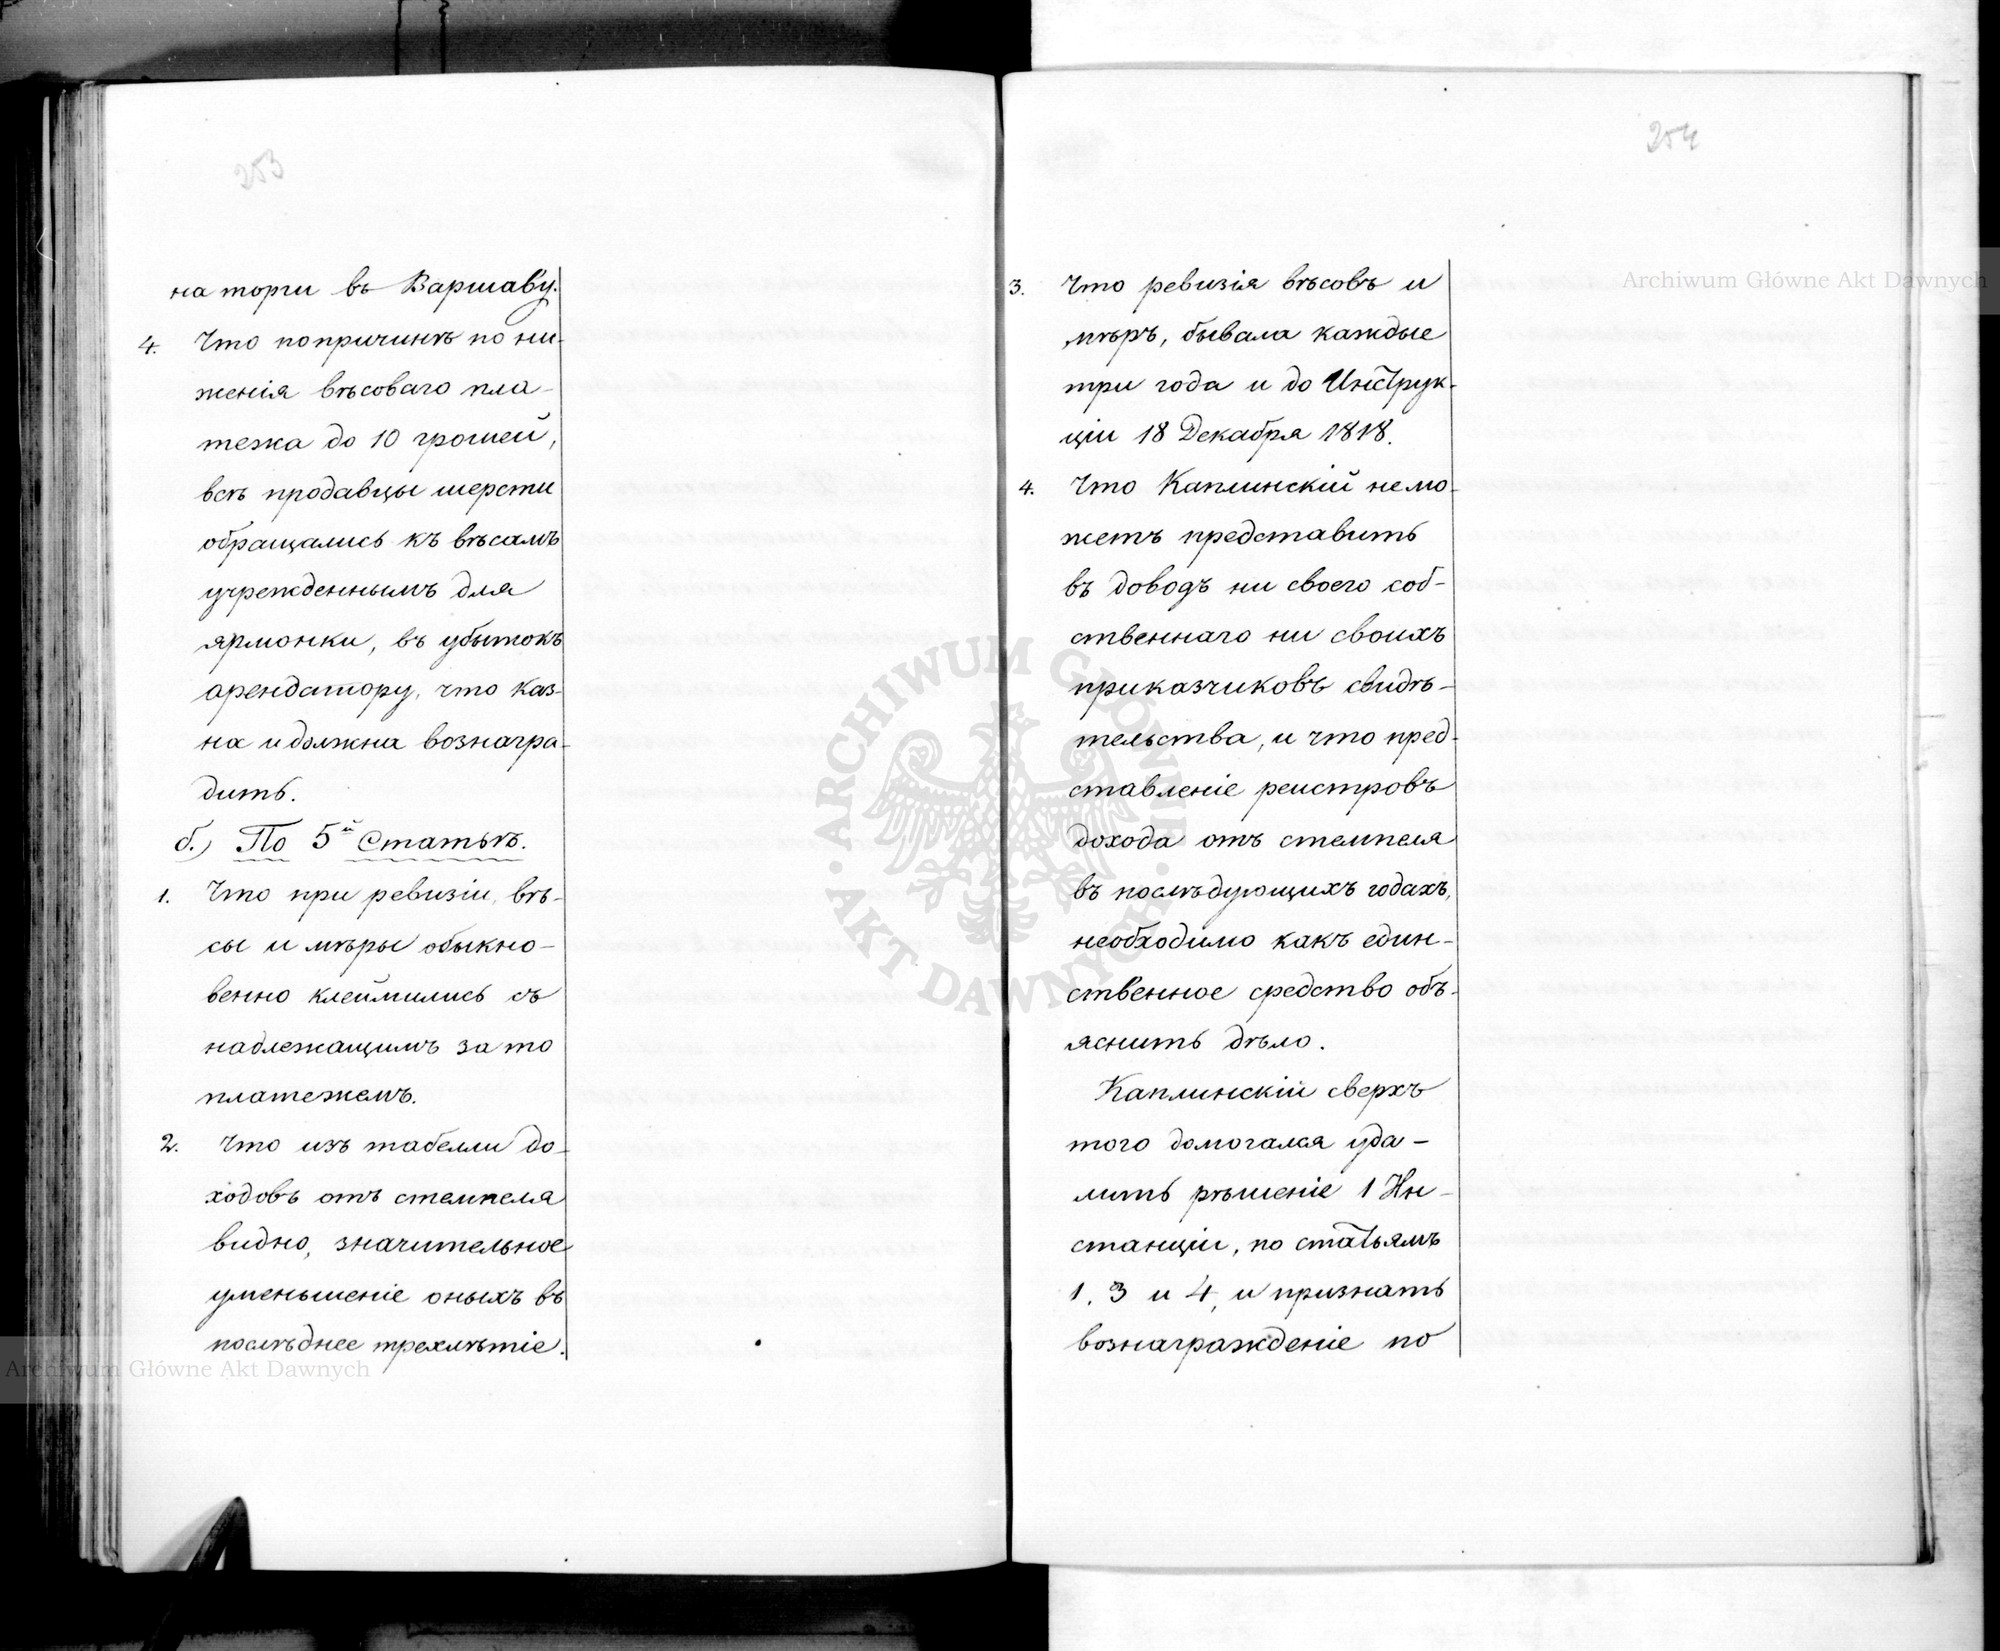 253
на торги въ Варшаву.
4. Что по причинѣ по ни-
женія вѣсоваго пла-
тежа до 10 грошей,
всѣ продавцы шерсти
обращались къ вѣсамъ
учрежденнымъ для
ярмонки, въ убытокъ
арендатору, что каз-
на и должна вознагра-
дить.
б.) По 5й Статьѣ.
1. Что при ревизіи, вѣ-
сы и мѣры обыкно-
венно клеймились съ
надлежащимъ за то
платежемъ.
2. Что изъ табелли до-
ходовъ отъ стемпеля
видно, значительное
уменьшеніе оныхъ въ
послѣднее трехлѣтіе.
254
3. Что ревизія вѣсовъ и
мѣръ, бывала каждые
три года и до Инструк-
ціи 18 Декабря 1818.
4. Что Каплинскій немо-
жетъ представить
въ доводъ ни своего соб-
ственнаго ни своихъ
приказчиковъ свидѣ-
тельства, и что пред-
ставленіе реистровъ
дохода отъ стемпеля
въ послѣдующихъ годахъ,
необходимо какъ един-
ственное средство объ-
яснить дѣло.
Каплинскій сверхъ
того домогался уда-
лить рѣшеніе 1 Ин-
станціи, по статьямъ
1, 3 и 4, и признать
вознагражденіе по
Archiwum Główne Akt Dawnych
Archiwum Główne Akt Dawnych
ARCHIWUM GŁÓWNE · AKT DAWNYCH ·